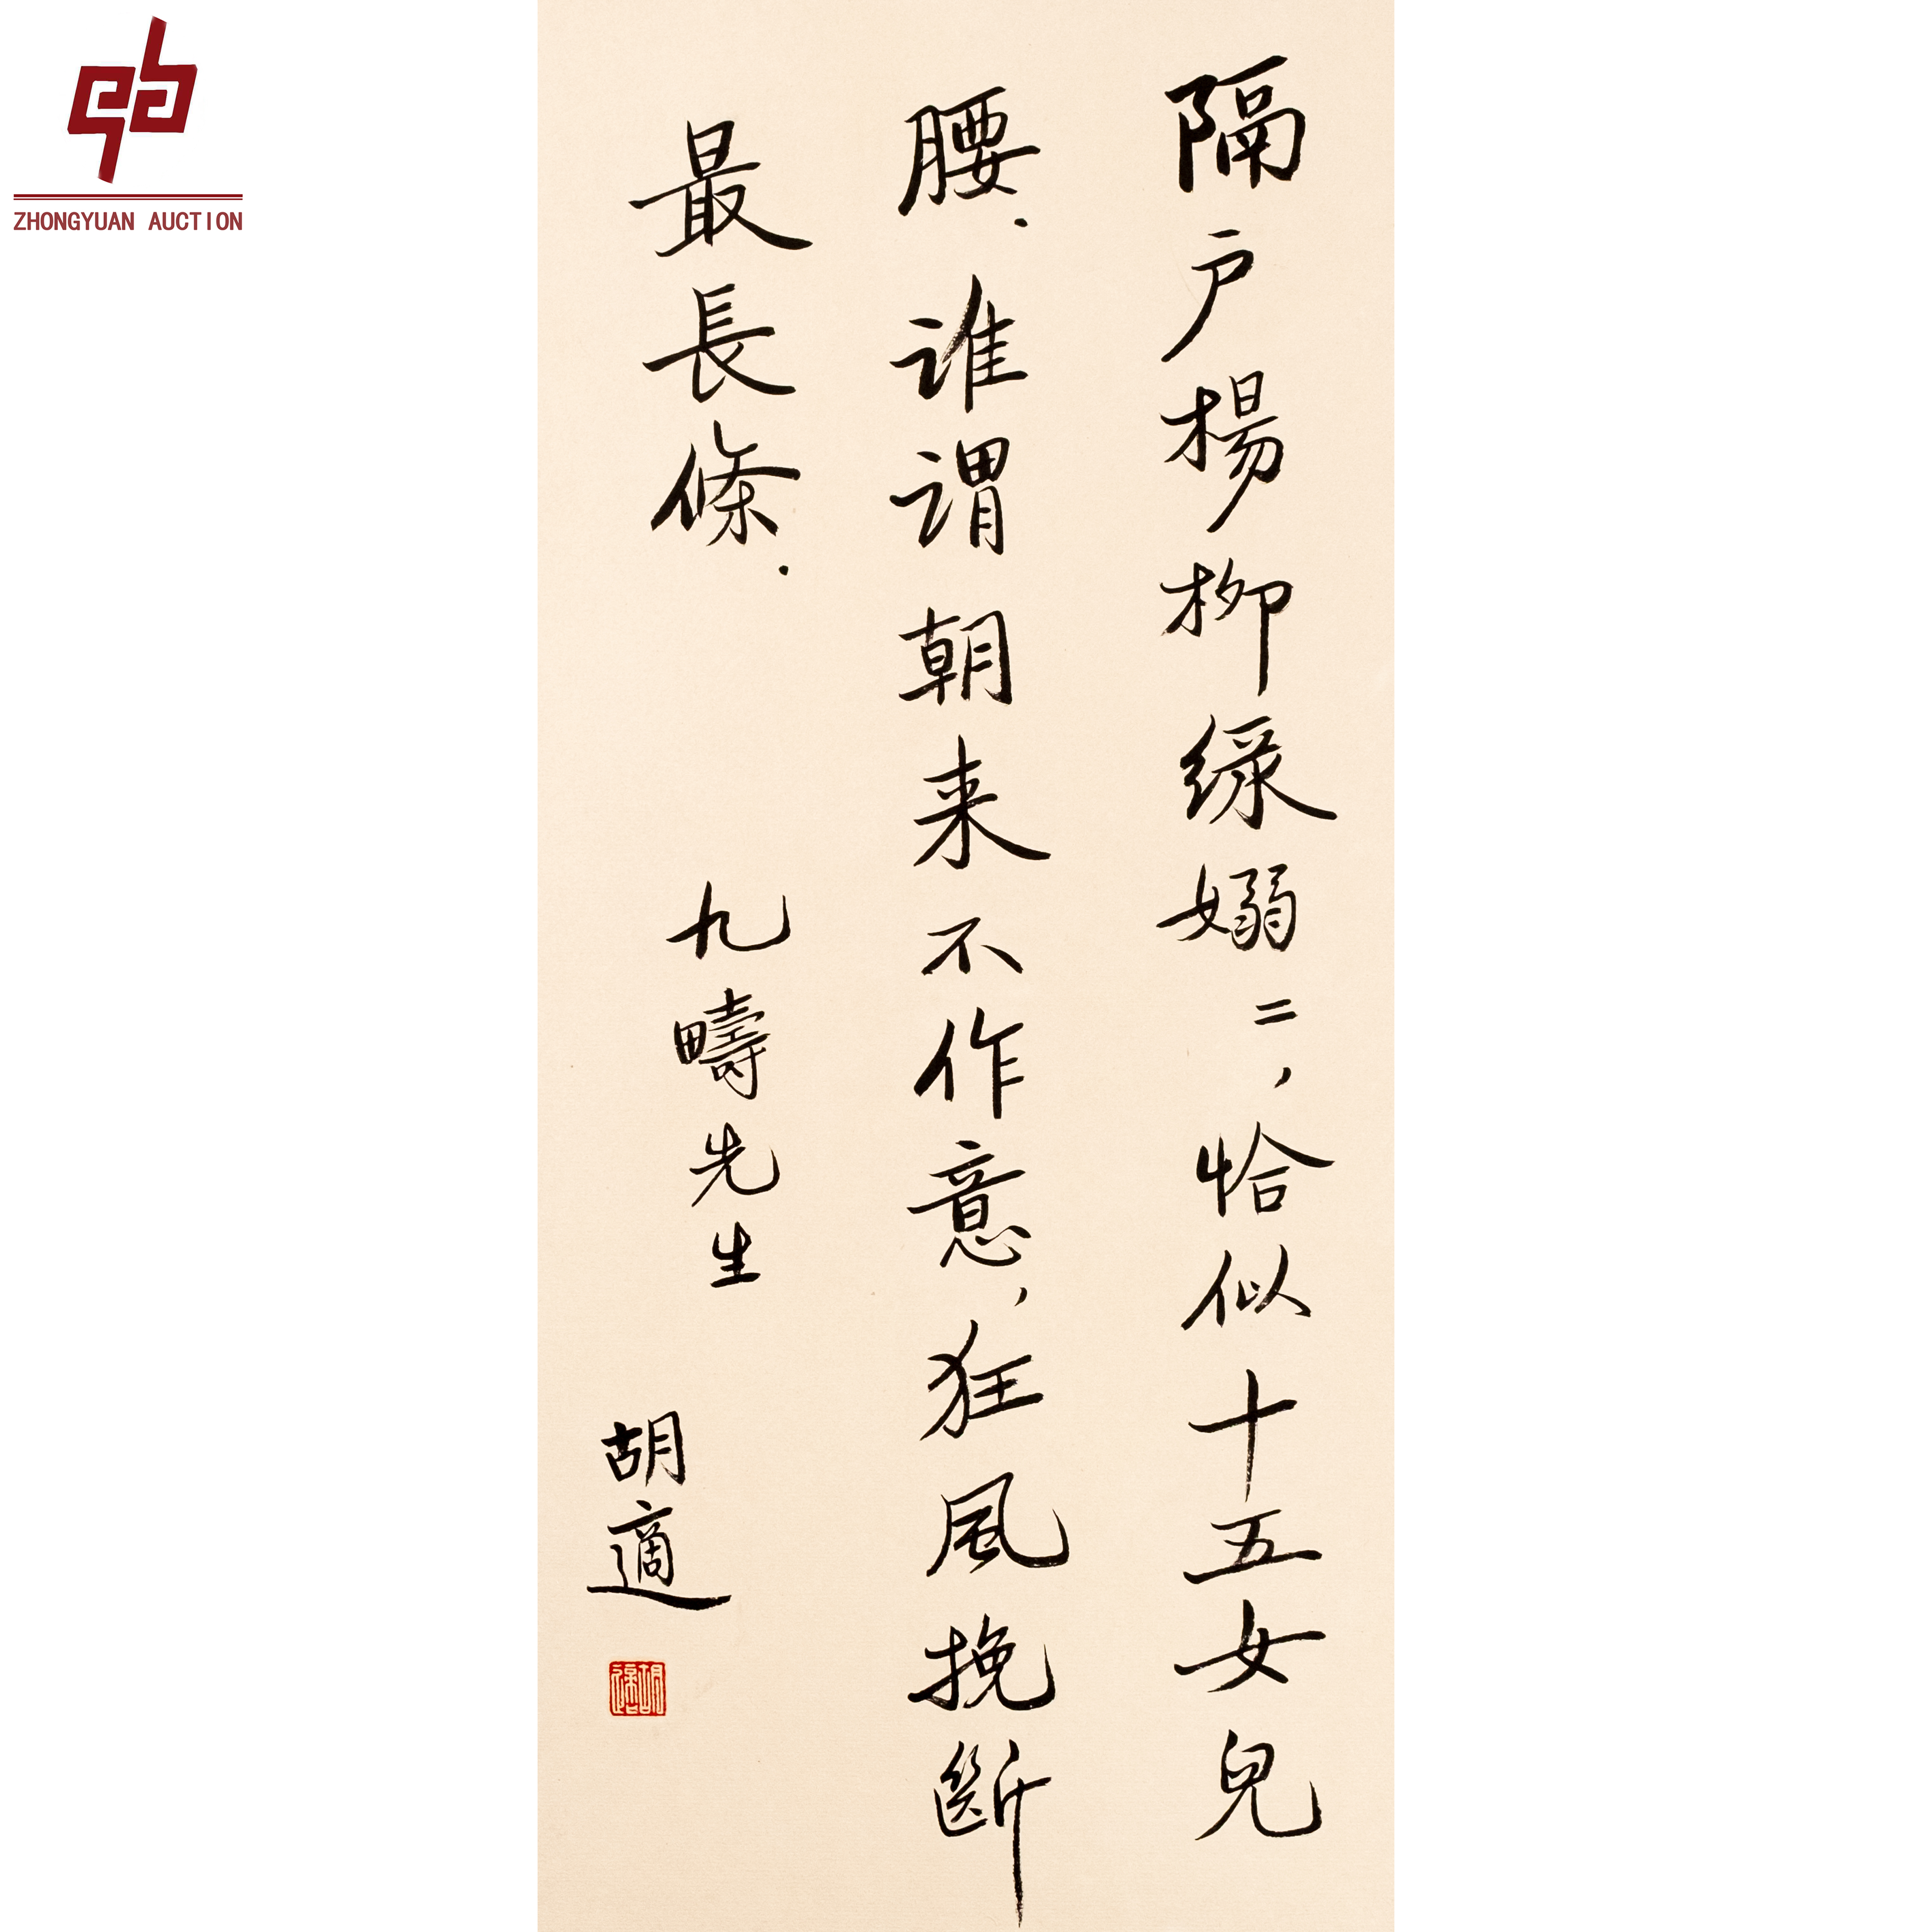 隔户楊柳綠嫋〻，恰似十五女兒
腰．谁谓朝来不作意，狂風挽斷
最長條．
九疇先生
胡適
ZHONGYUAN AUCTION